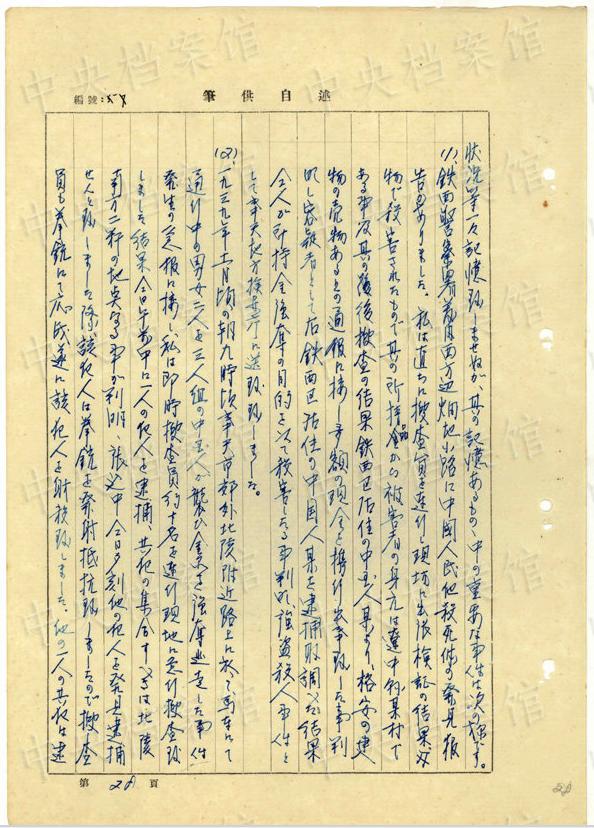 中央档案馆
編號：
筆供自述
状況等一々記憶致しませぬが、其の記憶あるもの、中の重要な事件は次の様です。
(1)、鉄西警察署管内西方辺畑地小路に中国人民他殺死体の発見報
告がありました。私は直ちに捜査員を連行し現場に出張検証の結果
物で殺害されたもので其の所持品から被害者の身元は遼中県某村で
ある事及其の後捜査の結果鉄西区居住の中国人某より、格安の建
物の売物あるとの通報に接し多額の現金を携行出奉致した事判
明し容疑者として右鉄西区居住の中国人某を逮捕取調べた結果
仝人が所持金強奪の目的を以て殺害したる事判明強盗殺人事件と
して奉天地方検察庁に送致致しました。
(2)、一九三九年十一月頃の朝九時頃奉天市郊外北陵附近路上に於て馬車にて
通行中の男女二人を三人組の中国人が襲ひ金品を強奪逃走した事件
発生の急報に接し、私は即時捜査員約十名を連行現地に急行捜査致
しました結果仝日午前中に一人の犯人を逮捕、共犯の集合する は北陵
南方二粁の地点なる事が判明、張込中仝日夕刻他の犯人を発見逮捕
せんと致しました際、該犯人は拳銃を発射抵抗致しましたので捜査
員も拳銃にて応戦遂に該犯人を射殺致しました。他の一人の共犯は逮
第 28 頁
28